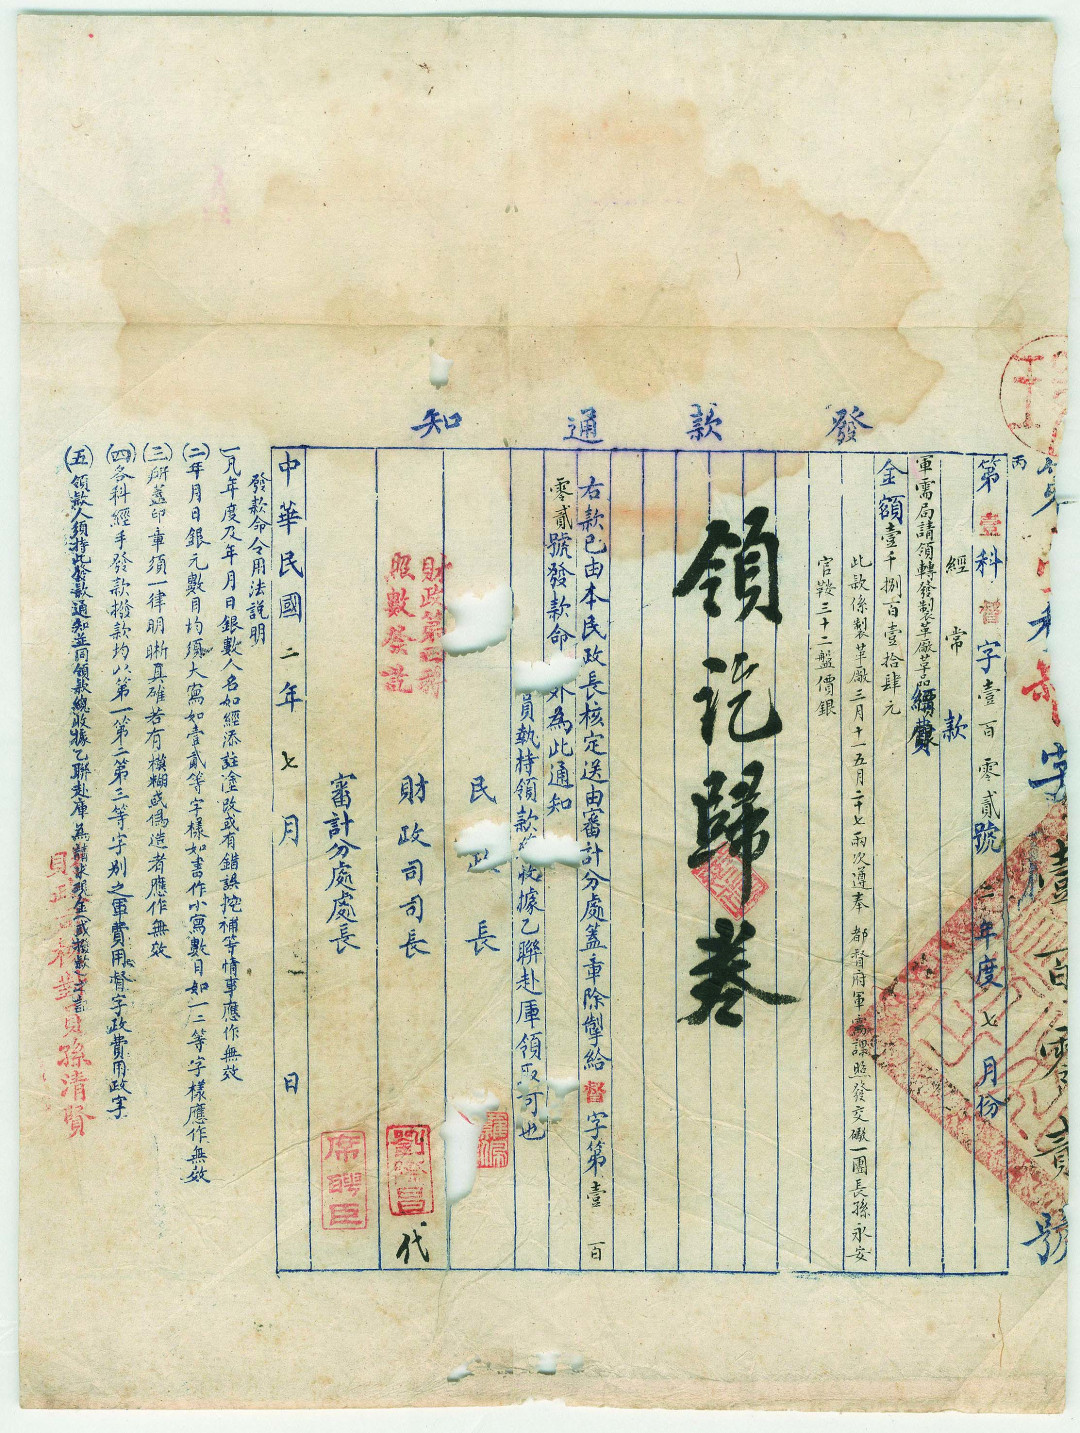 發款通知
丙
第壹科督字壹百零貳號二年度七月份
經常款
軍需局請領轉發製革廠革品價銀
金額壹千捌百壹拾肆元
此款係製革廠三月十一五月二十七兩次遵奉 都督府軍需課照發交礮一團長孫永安
官鞍三十二盤價銀
領訖歸卷
右款已由本民政長核定送由審計分處蓋章除掣給督字第壹百
零貳號發款命 外為此通知
員執持領款 收據乙聯赴庫領取可也
民政長
財政司司長
劉 昌
代
財政第 科
照數發訖
審計分處處長
席聘臣
中華民國二年七月 日
發款命令用法説明
一凡年度及年月日銀數人名如經添註塗改或有錯誤挖補等情事應作無效
(二)年月日銀元數目均須大寫如壹貳等字樣如書作小寫數目如一二等字樣應作無效
(三)所蓋印章須一律明晰真確若有模糊或偽造者應作無效
(四)各科經手發款撥款均以第一第二第三等字别之軍費用督字政費用政字
(五)領款人須持此發款通知並同領款總收據乙聯赴庫
孫清賢
字壹百零貳號